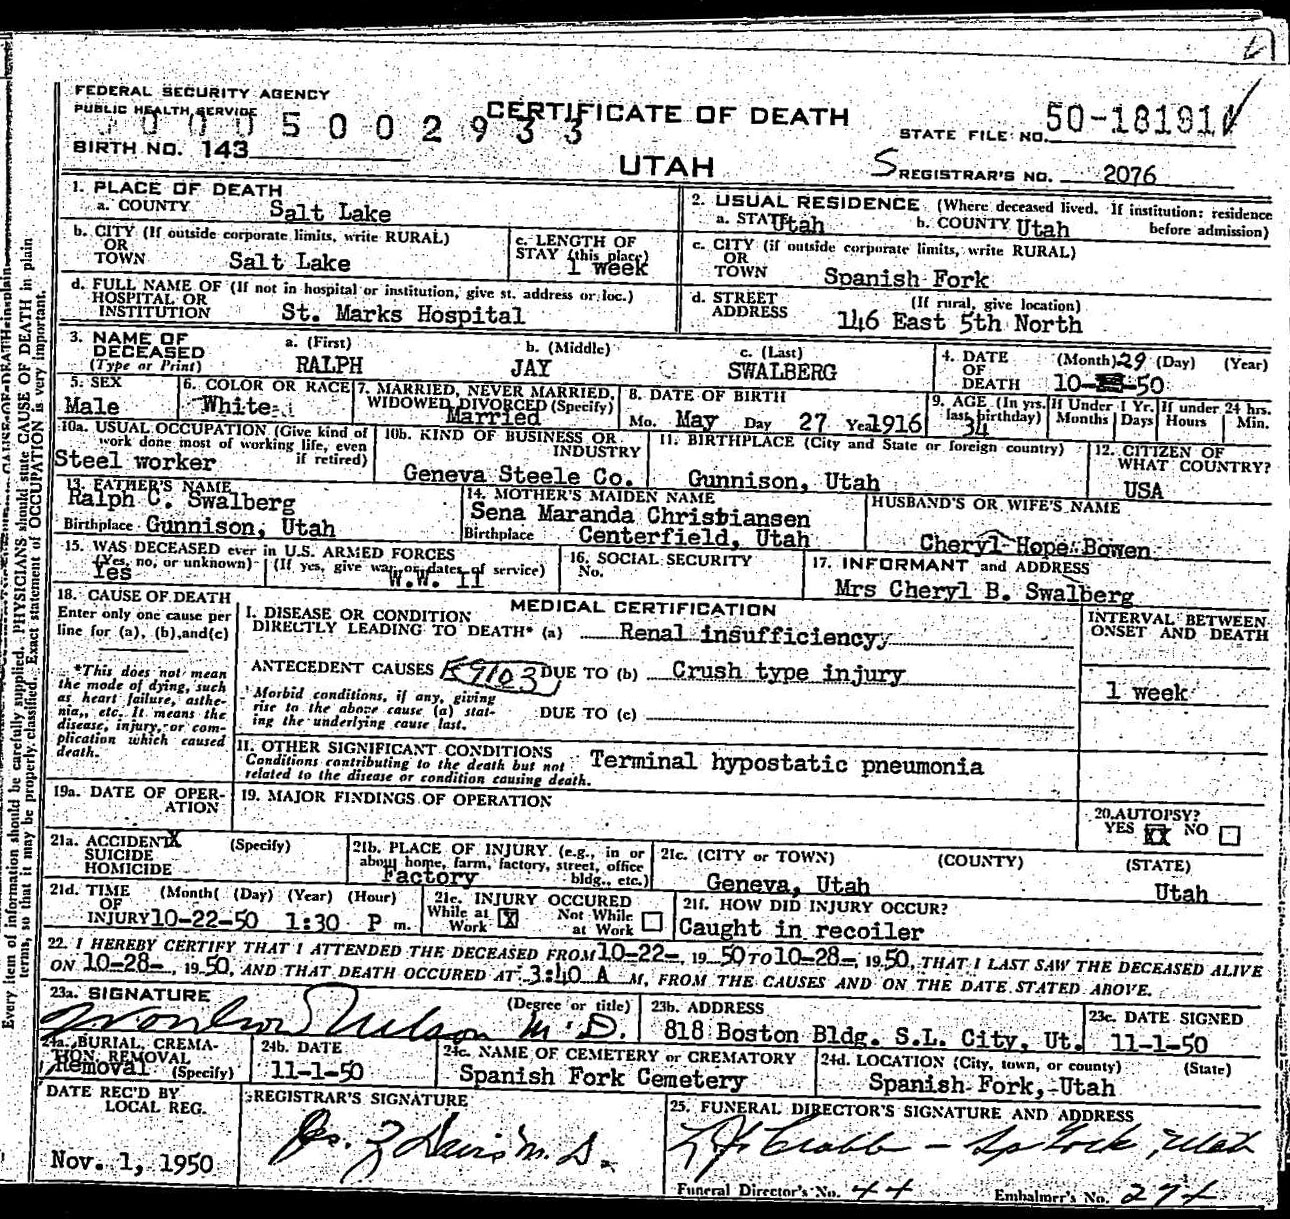 FEDERAL SECURITY AGENCY
PUBLIC HEALTH SERVICE
0005002933
CERTIFICATE OF DEATH
STATE FILE NO. 50-18191
BIRTH NO. 143
UTAH
REGISTRAR'S NO. 2076
1. PLACE OF DEATH
a. COUNTY Salt Lake
2. USUAL RESIDENCE (Where deceased lived. If institution: residence before admission)
a. STATE Utah b. COUNTY Utah
b. CITY (If outside corporate limits, write RURAL)
OR
TOWN Salt Lake
c. LENGTH OF
STAY (this place)
1 week
c. CITY (if outside corporate limits, write RURAL)
OR
TOWN Spanish Fork
d. FULL NAME OF (If not in hospital or institution, give st. address or loc.)
HOSPITAL OR
INSTITUTION St. Marks Hospital
d. STREET (If rural, give location)
ADDRESS 146 East 5th North
3. NAME OF
DECEASED
(Type or Print)
a. (First) b. (Middle) c. (Last)
RALPH JAY SWALBERG
4. DATE (Month) 29 (Day) (Year)
OF
DEATH 10- -50
5. SEX
Male
6. COLOR OR RACE
White
7. MARRIED, NEVER MARRIED,
WIDOWED DIVORCED (Specify)
Married
8. DATE OF BIRTH
Mo. May Day 27 Year 1916
9. AGE (In yrs. last birthday)
34
If Under 1 Yr. If under 24 hrs.
Months Days Hours Min.
10a. USUAL OCCUPATION (Give kind of
work done most of working life, even
if retired)
Steel worker
10b. KIND OF BUSINESS OR
INDUSTRY
Geneva Steele Co.
11. BIRTHPLACE (City and State or foreign country)
Gunnison, Utah
12. CITIZEN OF
WHAT COUNTRY?
USA
13. FATHER'S NAME
Ralph C. Swalberg
Birthplace Gunnison, Utah
14. MOTHER'S MAIDEN NAME
Sena Maranda Christiansen
Birthplace Centerfield, Utah
HUSBAND'S OR WIFE'S NAME
Cheryl Hope Bowen
15. WAS DECEASED ever in U.S. ARMED FORCES
(Yes, no, or unknown) (If yes, give war or dates of service)
Yes W.W. II
16. SOCIAL SECURITY
No.
17. INFORMANT and ADDRESS
Mrs Cheryl B. Swalberg
18. CAUSE OF DEATH
Enter only one cause per
line for (a), (b), and (c)
*This does not mean
the mode of dying, such
as heart failure, asthe-
nia, etc. It means the
disease, injury, or com-
plication which caused
death.
MEDICAL CERTIFICATION
I. DISEASE OR CONDITION
DIRECTLY LEADING TO DEATH* (a) Renal insufficiency
ANTECEDENT CAUSES K9103 DUE TO (b) Crush type injury
Morbid conditions, if any, giving
rise to the above cause (a) stat-
ing the underlying cause last.
DUE TO (c)
INTERVAL BETWEEN
ONSET AND DEATH
1 week
II. OTHER SIGNIFICANT CONDITIONS
Conditions contributing to the death but not
related to the disease or condition causing death.
Terminal hypostatic pneumonia
19a. DATE OF OPER-
ATION
19. MAJOR FINDINGS OF OPERATION
20. AUTOPSY?
YES XX NO
21a. ACCIDENT X (Specify)
SUICIDE
HOMICIDE
21b. PLACE OF INJURY (e.g., in or
about home, farm, factory, street, office
bldg., etc.)
Factory
21c. (CITY or TOWN) (COUNTY) (STATE)
Geneva, Utah Utah
21d. TIME (Month) (Day) (Year) (Hour)
OF
INJURY 10-22-50 1:30 P m.
21e. INJURY OCCURED
While at Work X Not While at Work
21f. HOW DID INJURY OCCUR?
Caught in recoiler
22. I HEREBY CERTIFY THAT I ATTENDED THE DECEASED FROM 10-22-, 19 50 TO 10-28-, 19 50, THAT I LAST SAW THE DECEASED ALIVE
ON 10-28-, 19 50, AND THAT DEATH OCCURED AT 3:40 A M, FROM THE CAUSES AND ON THE DATE STATED ABOVE.
23a. SIGNATURE (Degree or title)
Nelson M.D.
23b. ADDRESS
818 Boston Bldg. S.L. City, Ut.
23c. DATE SIGNED
11-1-50
24a. BURIAL, CREMA-
TION, REMOVAL
Removal (Specify)
24b. DATE
11-1-50
24c. NAME OF CEMETERY or CREMATORY
Spanish Fork Cemetery
24d. LOCATION (City, town, or county) (State)
Spanish Fork, Utah
DATE REC'D BY
LOCAL REG.
Nov. 1, 1950
REGISTRAR'S SIGNATURE
Jas. Z Davis M.D.
25. FUNERAL DIRECTOR'S SIGNATURE AND ADDRESS
Crabb - Sp Fork, Utah
Funeral Director's No. 44 Embalmer's No. 274
Every item of information should be carefully supplied. PHYSICIANS should state CAUSE OF DEATH in plain
terms, so that it may be properly classified. Exact statement of OCCUPATION is very important.